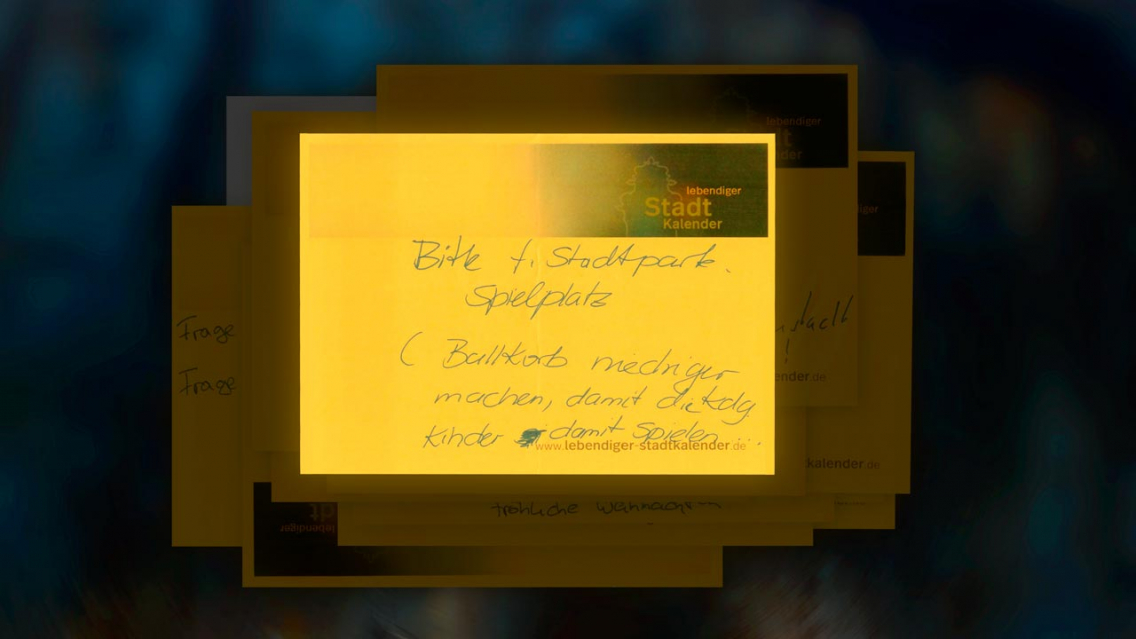 lebendiger
Stadt
Kalender
Bitte f. Stadtpark.
Spielplatz
( Ballkorb niedriger
machen, damit die Kdg
Kinder damit Spielen ...
www.lebendiger-stadtkalender.de
lebendiger
dt
nder
iger
Frage
Frage
!
ender.de
kalender.de
fröhliche Weihnachten
lebendiger